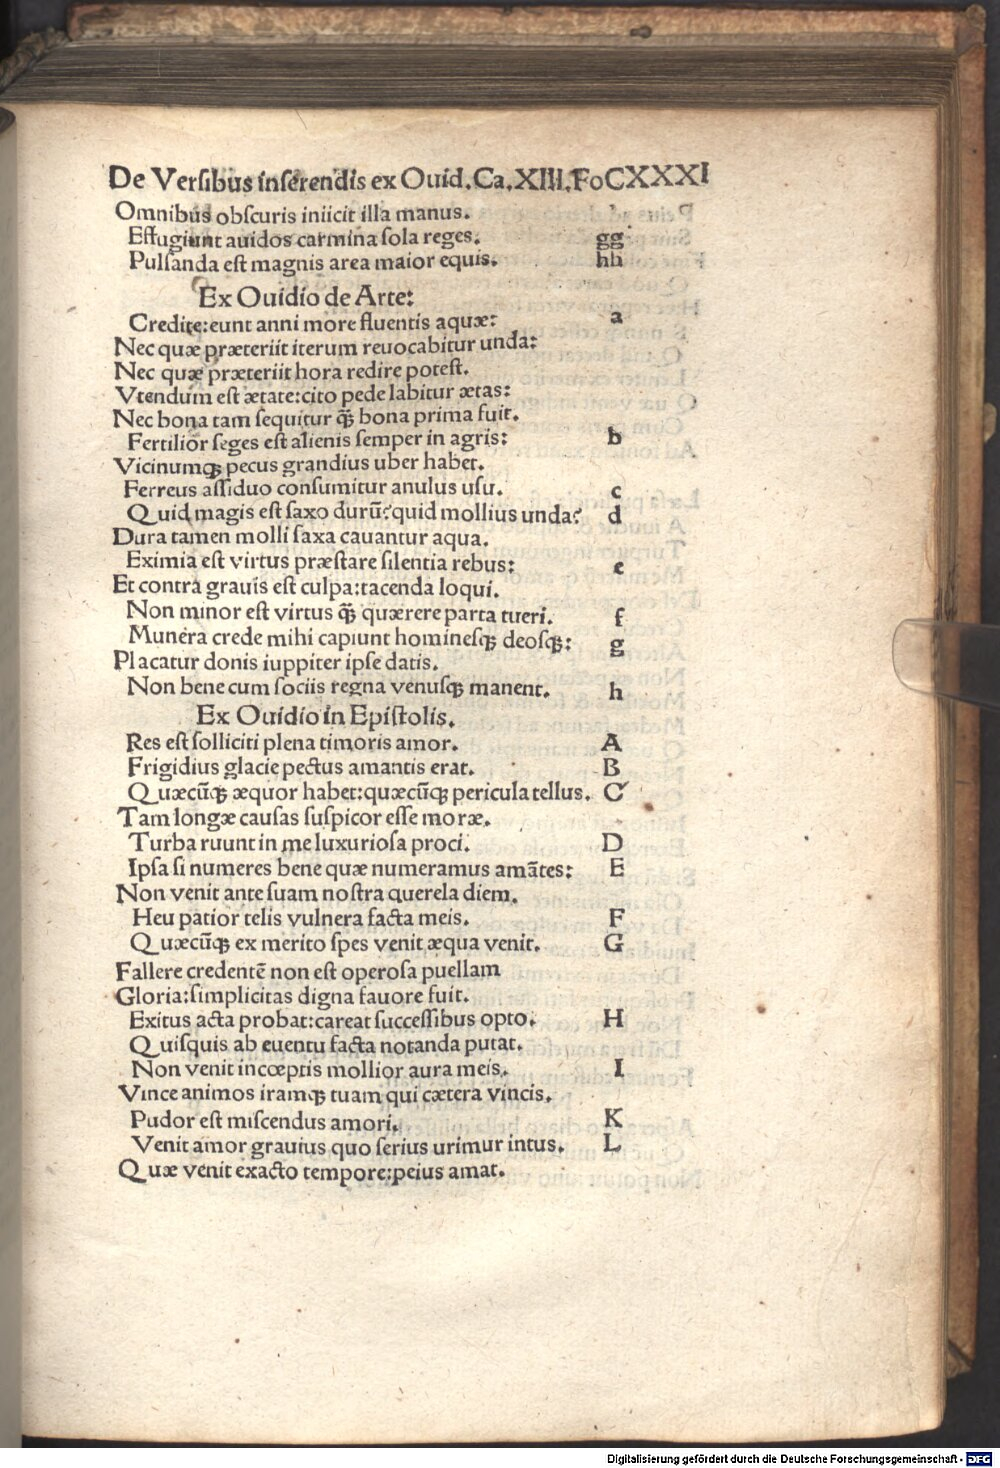 De Versibus inserendis ex Ouid.Ca.XIII.FoCXXXI
Omnibus obſcuris iniicit illa manus.
Effugiunt auidos carmina ſola reges. gg
Pulſanda est magnis area maior equis. hh
Ex Ouidio de Arte:
Credite:eunt anni more fluentis aquæ: a
Nec quæ præteriit iterum reuocabitur unda:
Nec quæ præteriit hora redire potest.
Vtendum est ætate:cito pede labitur ætas:
Nec bona tam ſequitur q̃ꝫ bona prima fuit.
Fertilior ſeges est alienis ſemper in agris: b
Vicinumqꝫ pecus grandius uber habet.
Ferreus aſſiduo conſumitur anulus uſu. c
Quid magis est ſaxo durũ?quid mollius unda? d
Dura tamen molli ſaxa cauantur aqua.
Eximia est uirtus præstare ſilentia rebus: e
Et contra grauis est culpa:tacenda loqui.
Non minor est virtus q̃ꝫ quærere parta tueri. f
Munera crede mihi capiunt hominesqꝫ deosqꝫ: g
Placatur donis iuppiter ipſe datis.
Non bene cum ſociis regna venusqꝫ manent. h
Ex Ouidio in Epiſtolis.
Res est ſolliciti plena timoris amor. A
Frigidius glacie pectus amantis erat. B
Quæcũqꝫ æquor habet:quæcũqꝫ pericula tellus. C
Tam longæ cauſas ſuſpicor eſſe moræ.
Turba ruunt in me luxurioſa proci. D
Ipſa ſi numeres bene quæ numeramus amãtes: E
Non venit ante ſuam nostra querela diem.
Heu patior telis vulnera facta meis. F
Quæcũqꝫ ex merito ſpes venit æqua venit. G
Fallere credentẽ non est operoſa puellam
Gloria:ſimplicitas digna fauore fuit.
Exitus acta probat:careat ſucceſſibus opto. H
Quiſquis ab euentu facta notanda putat.
Non venit incœptis mollior aura meis. I
Vince animos iramqꝫ tuam qui cætera vincis.
Pudor est miſcendus amori. K
Venit amor grauius quo ſerius urimur intus. L
Quæ venit exacto tempore:peius amat.
Digitalisierung gefördert durch die Deutsche Forschungsgemeinschaft - DFG